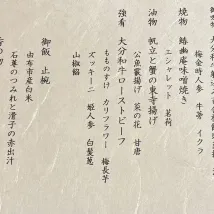 梅金時人参 牛蒡 イクラ
焼物 鰆幽庵味噌焼き
エシャレット 茗荷
油物 帆立と蟹の東寺揚げ
公魚霰揚げ 菜の花 甘唐
強肴 大分和牛ローストビーフ
もものすけ カリフラワー 梅長芋
ズッキーニ 姫人参 白髪葱
山椒餡
御飯 止椀
由布市産白米
石尊のつみれと滑子の赤出汁